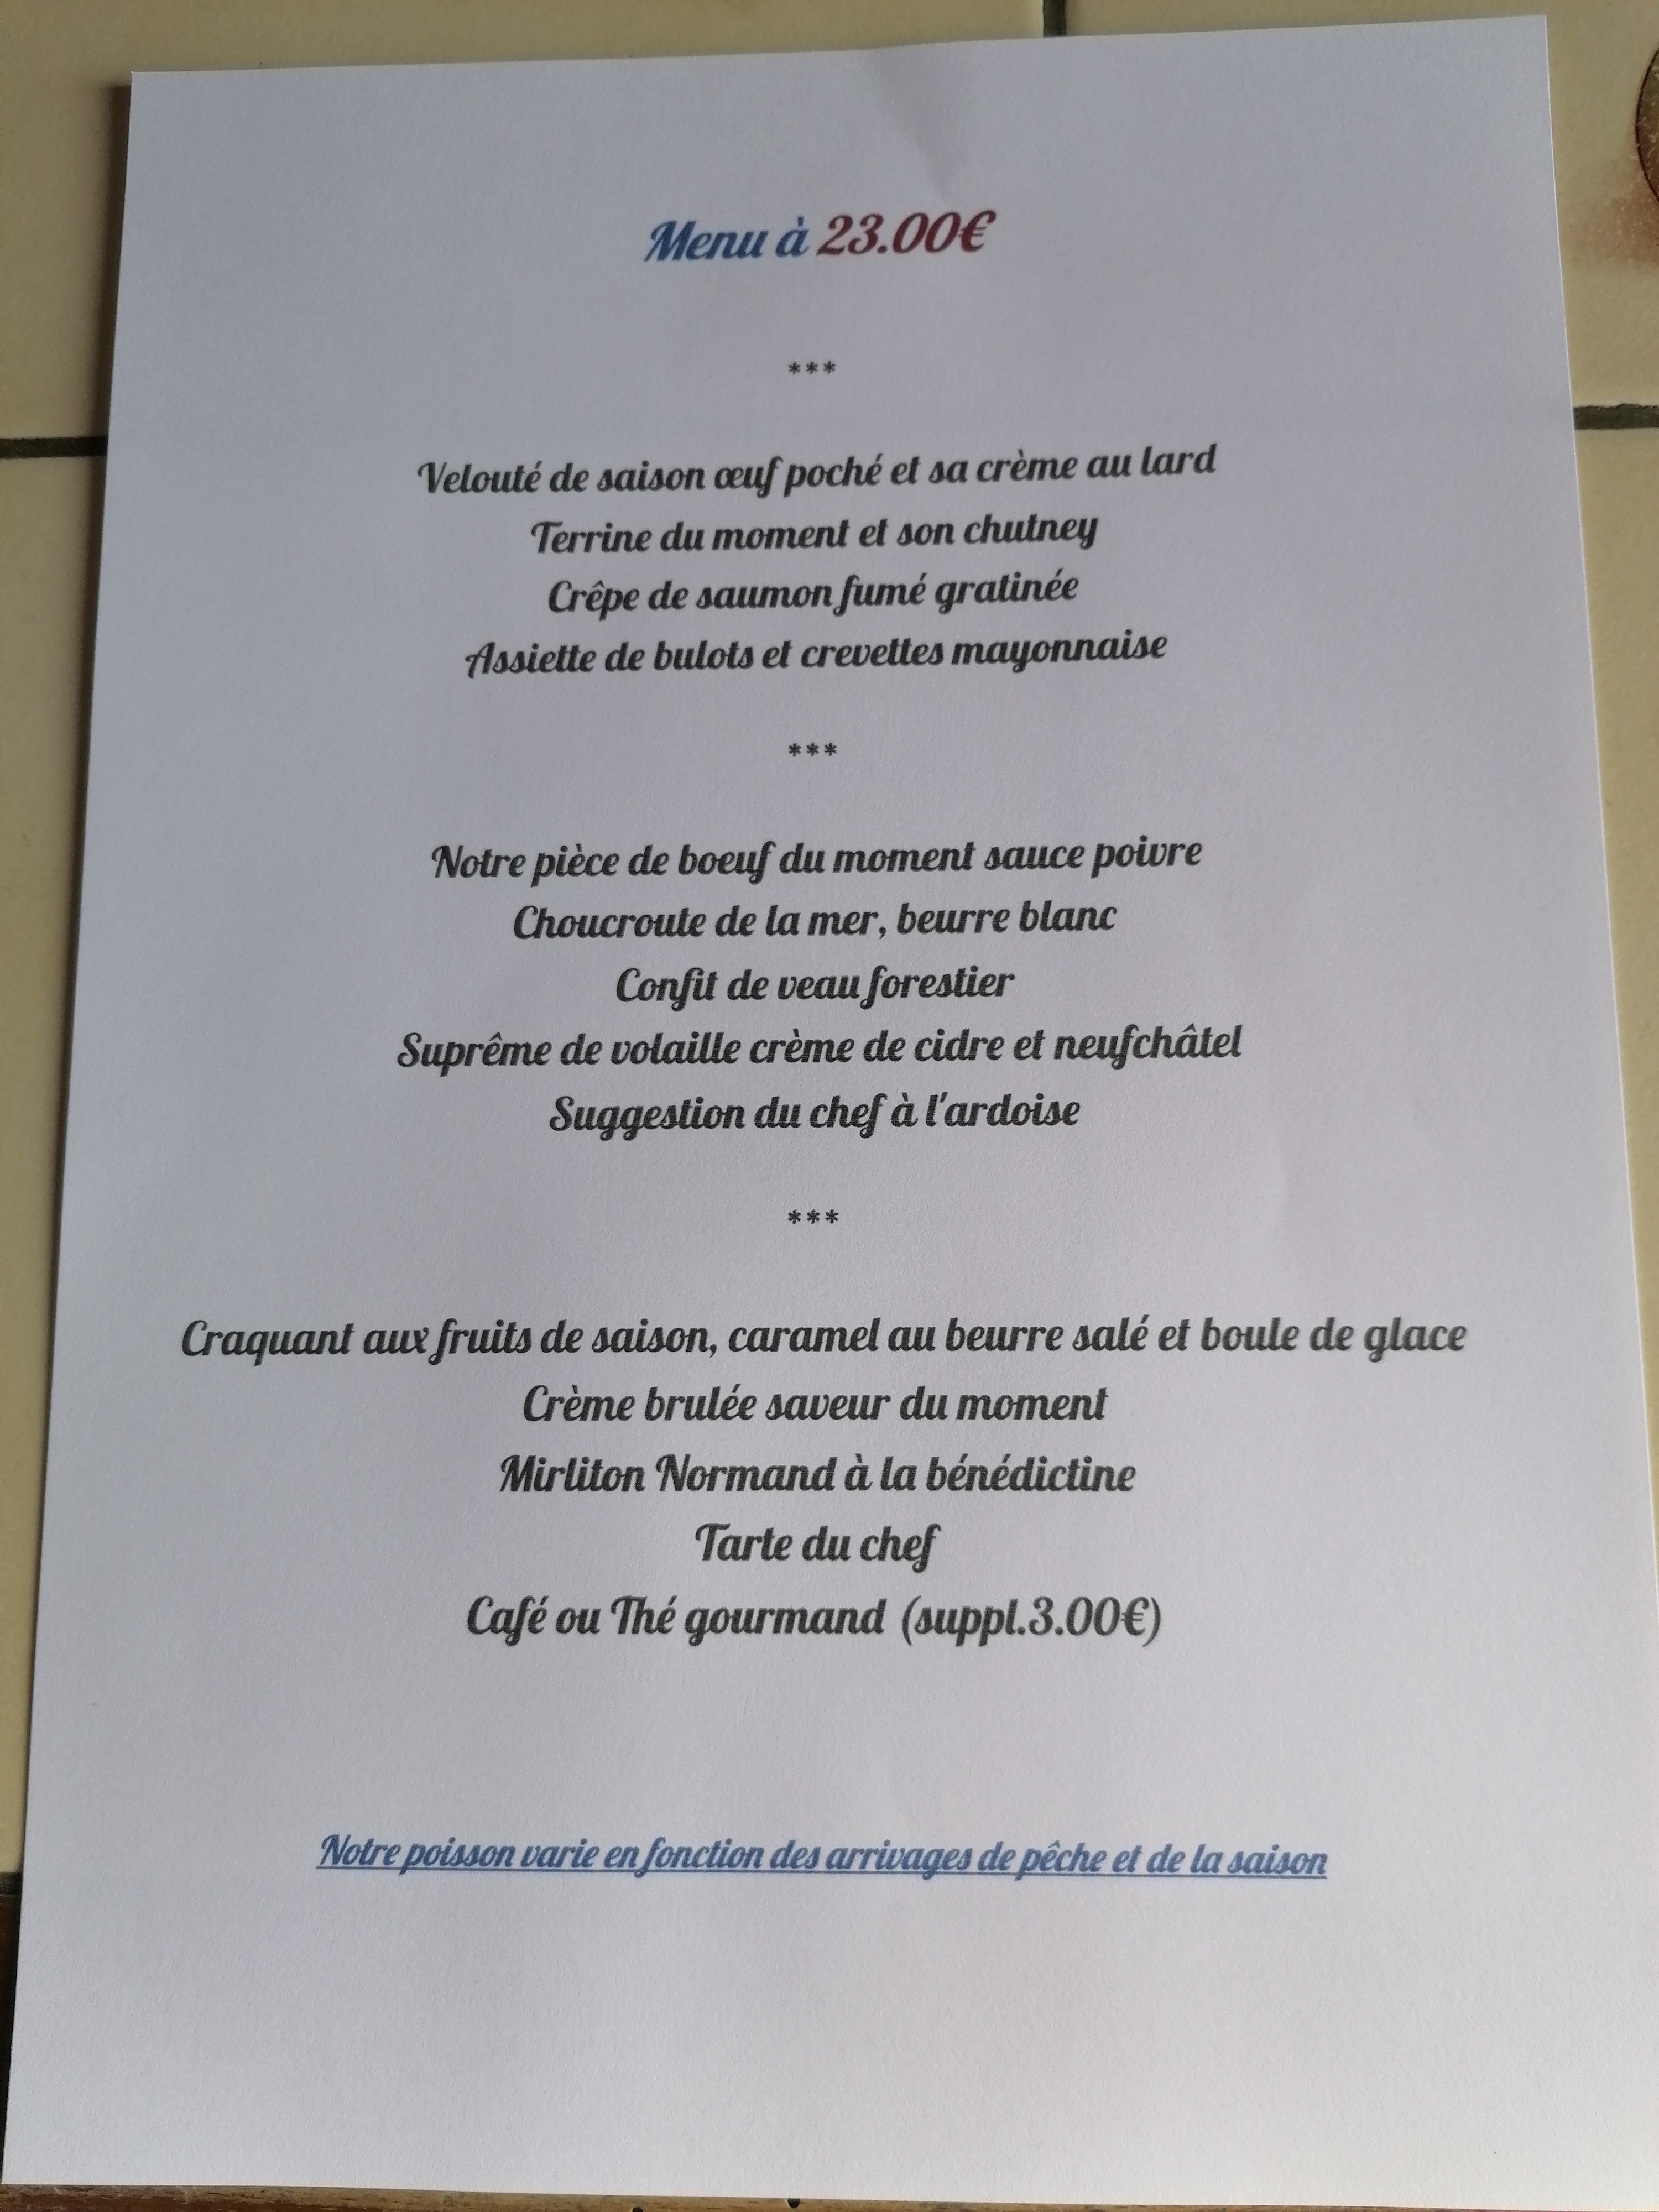 Menu à 23.00€
***
Velouté de saison œuf poché et sa crème au lard
Terrine du moment et son chutney
Crêpe de saumon fumé gratinée
Assiette de bulots et crevettes mayonnaise
***
Notre pièce de boeuf du moment sauce poivre
Choucroute de la mer, beurre blanc
Confit de veau forestier
Suprême de volaille crème de cidre et neufchâtel
Suggestion du chef à l'ardoise
***
Craquant aux fruits de saison, caramel au beurre salé et boule de glace
Crème brulée saveur du moment
Mirliton Normand à la bénédictine
Tarte du chef
Café ou Thé gourmand (suppl.3.00€)
Notre poisson varie en fonction des arrivages de pêche et de la saison